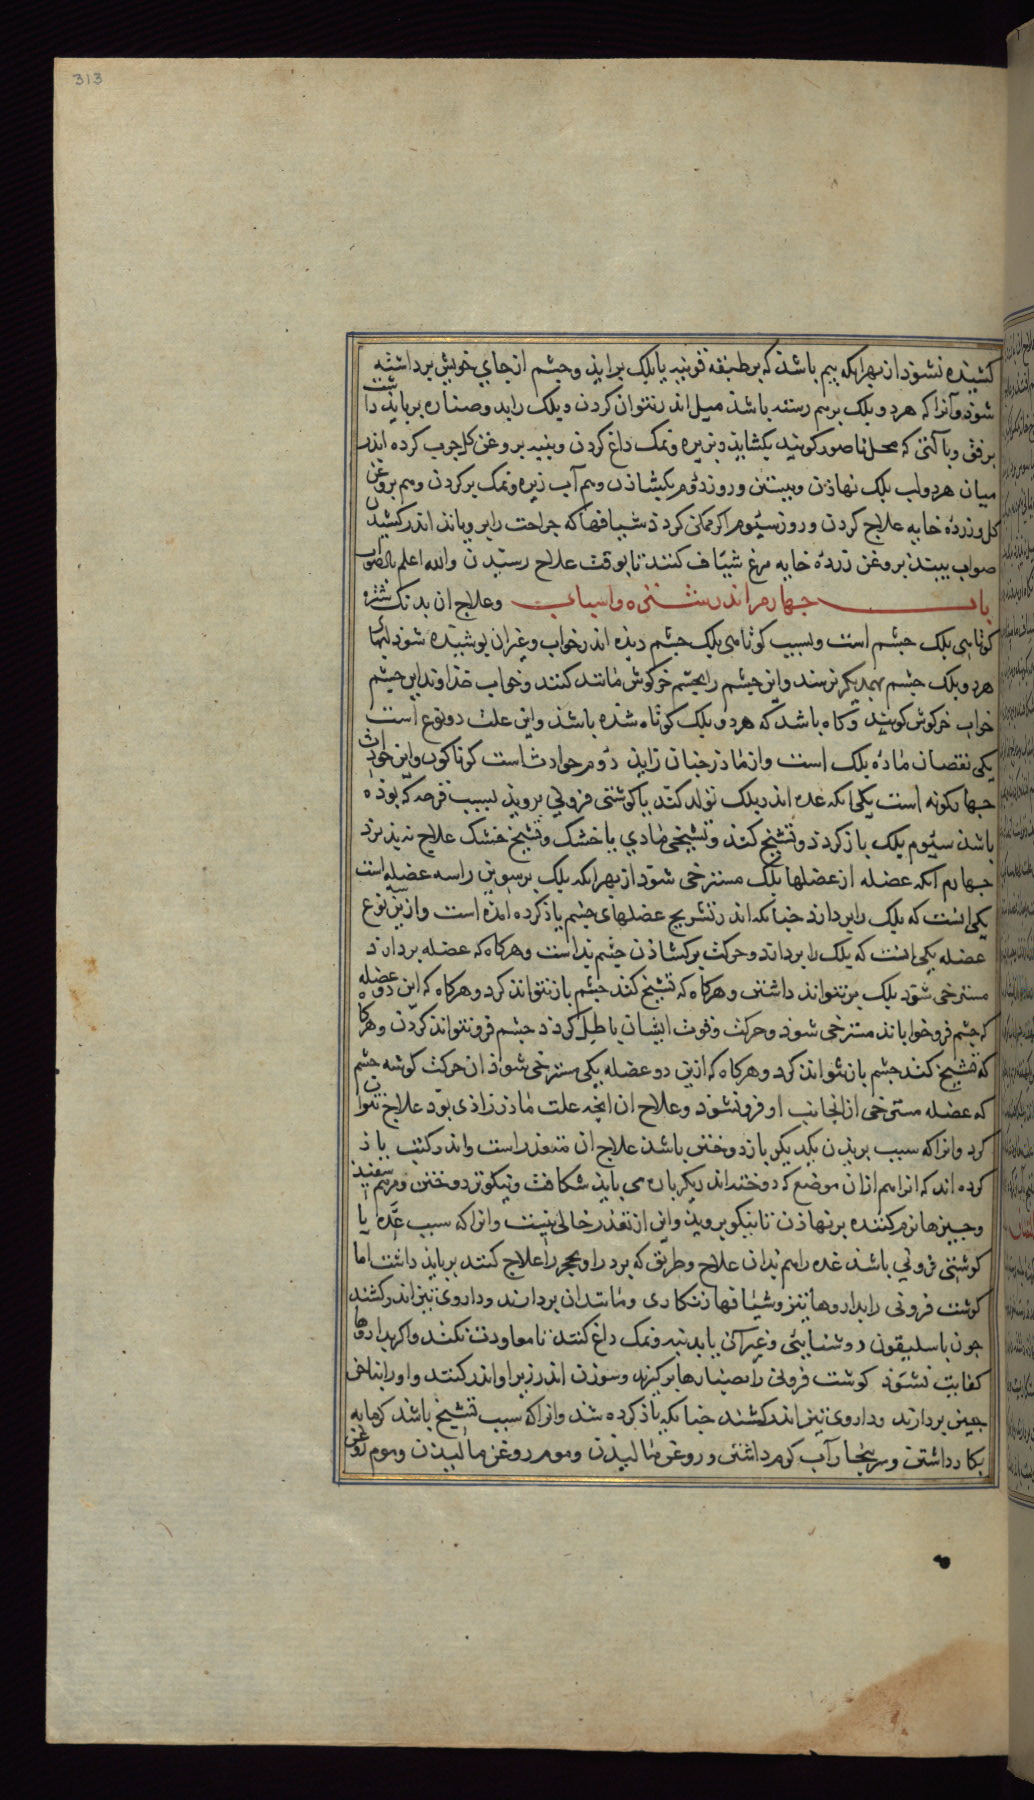 313
کشیده نشود از بهر انکه بیم باشد که بر طبقه قرنیه یا پلک براید و چشم از جای خویش برداشته
شود و آنرا که هر دو پلک برهم رسته باشد میل اندر نتوان کردن و پلک را بد و صناره بر باید داشت
برفق و بآلتی که محل ناصور کویند بکشاید و بزیره و نمک داغ کردن و پنبه بروغن کل چرب کرده اندر
میان هر دو لب پلک نهاذن و ببستن و روز دوم بکشاذن و هم آب زیره و نمک بر کردن و هم بروغن
کل و زرده خایه علاج کردن و روز سیوم اکر ممکن کردد شیافها که جراحت را برویاند اندر کشیدن
صواب بیند بروغن زرده خایه مرغ شیاف کنند تا بوقت علاج رسیدن والله اعلم بالصواب
باب چهارم اندر شتره و اسباب وعلاج ان بدانک شتره
کوتاهی پلک چشم است و بسبب کوتاهی پلک چشم دیده اندر خواب و غیر ان پوشیده نشود لبهای
هر دو پلک چشم بهمدیکر نرسند و این چشم را بچشم خرکوش مانند کنند و خواب خداوند این چشم
خواب خرکوش کویند و کاه باشد که هر دو پلک کوتاه شده باشد و این علت دو نوع است
یکی نقصان ماده پلک است و از ماذر چنان زاید دوم حوادث است کوناکون و این حوادث
چهار کونه است یکی انکه غده اندر پلک تولد کند یا کوشتی فزونی بروید بسبب قرحه که بوذه
باشد سیوم پلک باز کردد و تشنج کند و تشنجی مادی یا خشک و تشنج خشک علاج نپذیرد
چهارم انکه عضله از عضلها پلک مسترخی شود از بهر انکه پلک برسوین را سه عضله است
یکی انست که پلک را بردارد چنانکه اندر تشریح عضلهای چشم یاذ کرده امذه است و ازین نوع
عضله یکی انست که پلک را بردارد و حرکت برکشاذن چشم بذانست و هرکاه که عضله بردارد
مسترخی شود پلک بر نتواند داشتن و هرکاه که تشنج کند چشم باز نتواند کرد و هرکاه که این دو عضله
که چشم فرو خواباند مسترخی شود و حرکت و قوت ایشان باطل کردد چشم فرو نتواند کردن و هرکاه
که تشنج کند چشم باز نتواند کرد و هرکاه که ازین دو عضله یکی مسترخی شود ان حرکت کوشه چشم
که عضله مسترخی از انجانب او فرو نشود و علاج ان انچه علت ماذرزاذی بود علاج نتوان
کرد و انرا که سبب بریدن یکدیکر بازدوختن باشد علاج ان متعذر است و اندر کتب یاذ
کرده اند که انرا هم ازان موضع که دوخته اند دیکر باره می باید شکافت و نیکوتر دوختن و مرهم سفید
و چیزها نرم کننده بر نهاذن تا نیکو بروید و این از تعذر خالی نیست و انرا که سبب غده یا
کوشتی فزونی باشد غده را هم بدان علاج و طریق که برد را و تحجر را علاج کنند بر باید داشت اما
کوشت فزونی را بداروها تیز و شیافها زنکاری و مانند ان بردارند و داروی تیز اندر کشند
چون باسلیقون و روشنایی و غیر آن یا بد بنبه و نمک داغ کنند تا معاودت نکند و اکر بداروها
کفایت نشود کوشت فزونی را بصنارها برکیرند و سوزن اندر زیر او اندر کنند و او را بناخن
چینی بردارند و داروی تیز اندر کشند چنانکه یاذ کرده شد و انرا که سبب تشنج باشد کرمابه
بکار داشتن و سر ببخار آب کرم داشتن و روغن مالیذن و موم روغن مالیذن و موم روغن